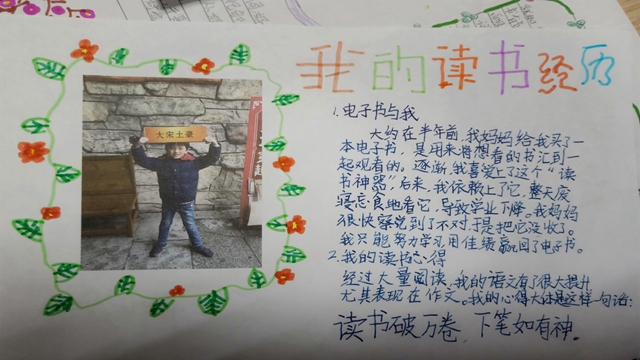 我的读书经历
大宋土豪
1.电子书与我
大约在半年前,我妈妈给我买了一
本电子书,是用来将想看的书汇到一
起观看的。逐渐,我喜爱上了这个“读
书神器”,后来,我依赖上了它,整天废
寝忘食地看它,导致学业下降。我妈妈
很快察觉到了不对,于是把它没收了。
我只能努力学习用佳绩赢回了电子书。
2.我的读书心得
经过大量阅读,我的语文有了很大提升
尤其表现在作文。我的心得大体是这样一句话:
读书破万卷,下笔如有神。